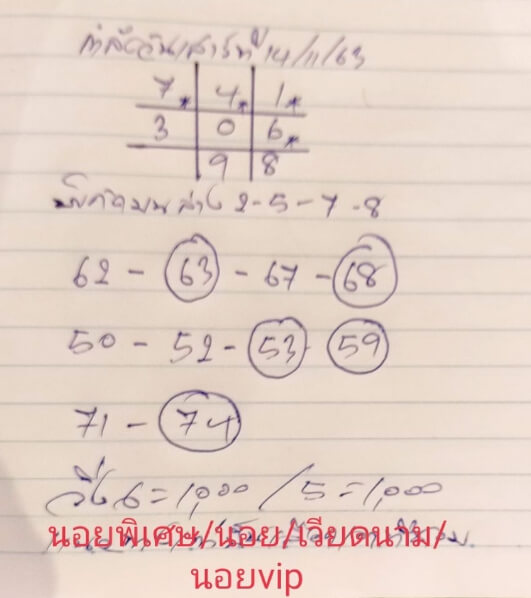 วันเสาร์ที่ 14/11/63
7* 4* 1*
3 0 6*
9 8
บน ล่าง 2-5-7-8
62 - 63 - 67 - 68
50 - 52 - 53 - 59
71 - 74
วิ่ง 6 = 1,000 / 5 = 1,000
นอยพิเศษ/นอย/เวียดนาม/
นอยvip